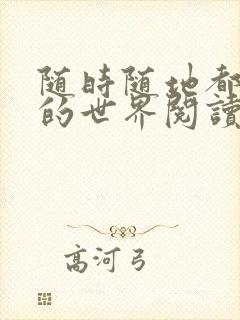 随時随地都
的世界閱讀
高河弓